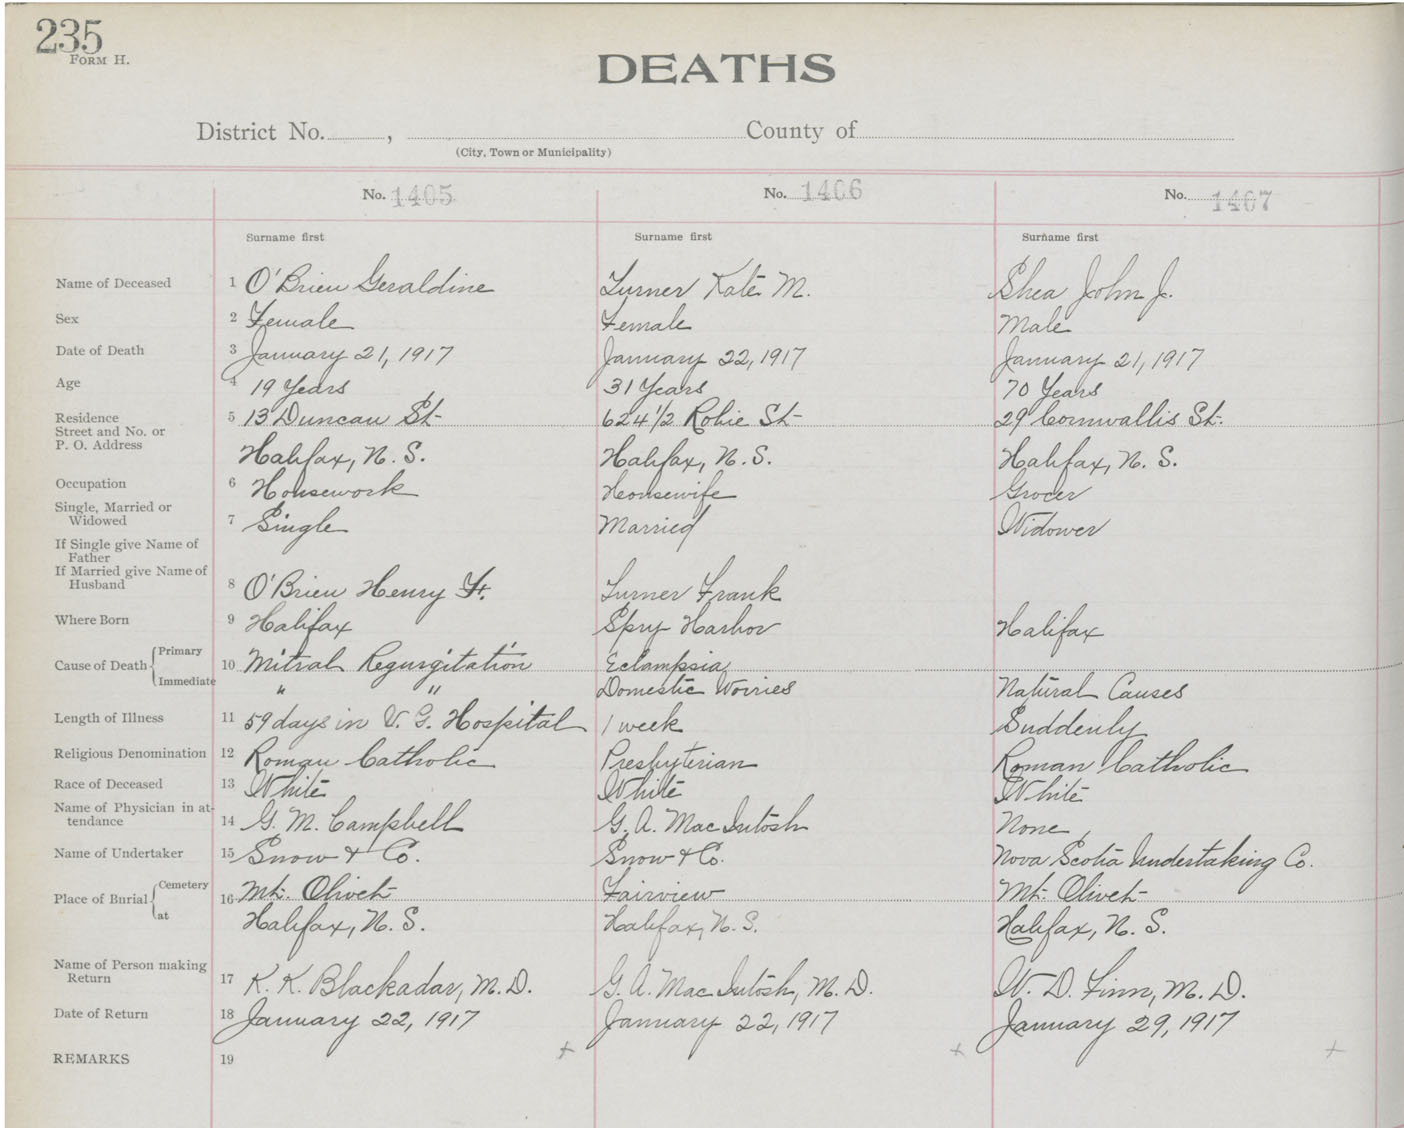 235
FORM H.
DEATHS
District No. , County of
(City, Town or Municipality)
No. 1405 No. 1406 No. 1467
Surname first Surname first Surname first
Name of Deceased 1 O'Brien Geraldine Turner Kate M. Shea John J.
Sex 2 Female Female Male
Date of Death 3 January 21, 1917 January 22, 1917 January 21, 1917
Age 4 19 Years 31 Years 70 Years
Residence 5 13 Duncan St 624 1/2 Robie St 29 Cornwallis St.
Street and No. or
P. O. Address Halifax, N. S. Halifax, N. S. Halifax, N. S.
Occupation 6 Housework Housewife Grocer
Single, Married or
Widowed 7 Single Married Widower
If Single give Name of
Father
If Married give Name of
Husband 8 O'Brien Henry Turner Frank
Where Born 9 Halifax Spry Harbor Halifax
Cause of Death Primary 10 Mitral Regurgitation Eclampsia
Immediate " " Domestic Worries Natural Causes
Length of Illness 11 59 days in V. G. Hospital 1 week Suddenly
Religious Denomination 12 Roman Catholic Presbyterian Roman Catholic
Race of Deceased 13 White White White
Name of Physician in at-
tendance 14 G. M. Campbell G. A. MacIntosh None
Name of Undertaker 15 Snow & Co. Snow & Co. Nova Scotia Undertaking Co.
Place of Burial Cemetery 16 Mt. Olivet Fairview Mt. Olivet
at Halifax, N. S. Halifax, N. S. Halifax, N. S.
Name of Person making
Return 17 K. K. Blackadar, M. D. G. A. MacIntosh, M. D. W. D. Finn, M. D.
Date of Return 18 January 22, 1917 January 22, 1917 January 29, 1917
REMARKS 19 + + +